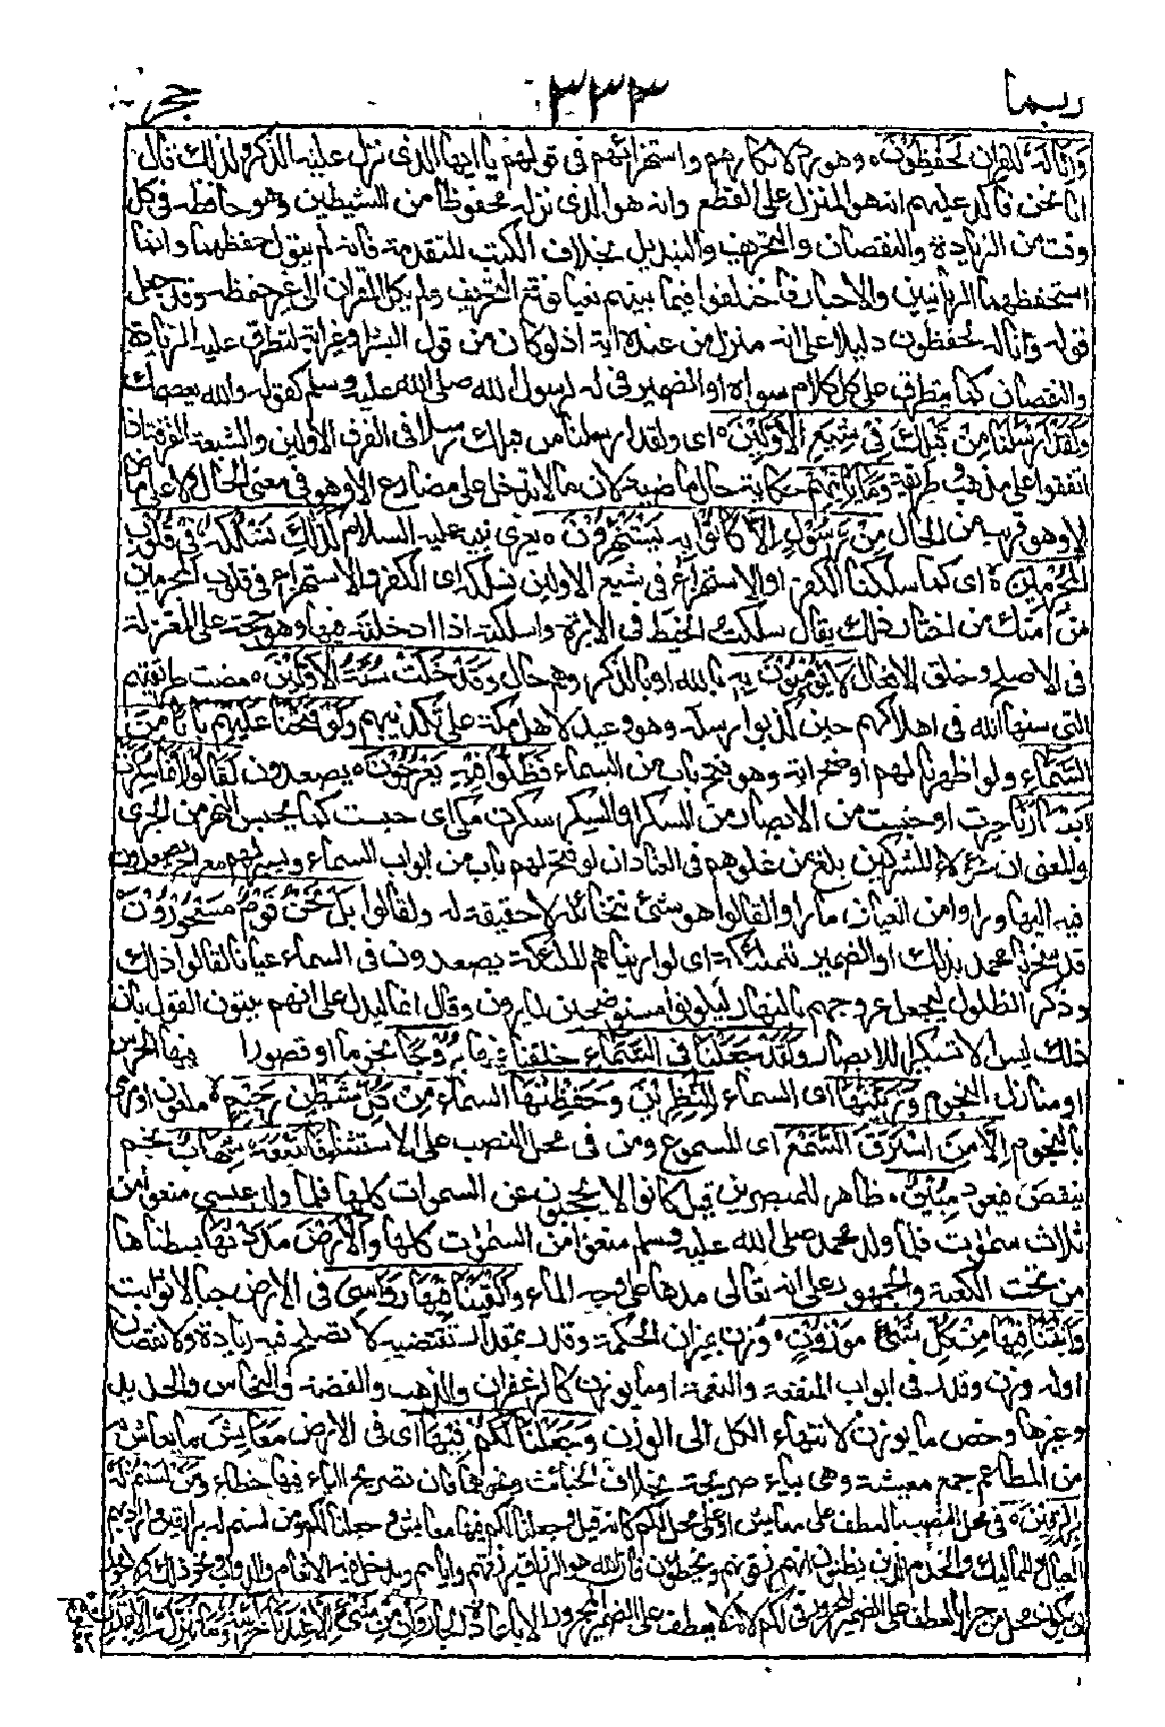 ربما ٣٣٣ حجر
وَإِنَّا لَهُ للقران لَحٰفِظُوْنَ ه وهو رد لانكارهم واستهزائهم فى قولهم يا ايها الذى نزل عليه الذكر ولذلك قال
انا نحن فاكد عليهم انه هو المنزل على القطع وانه هو الذى نزله محفوظا من الشيطين وهو حافظه فى كل
وقت من الزيادة والنقصان والتحريف والتبديل بخلاف الكتب المتقدمة فانه لم يتول حفظها وانما
استحفظها الربانيين والاحبار فاختلفوا فيما بينهم بغيا فوقع التحريف ولم يكل القران الى غير حفظه وقد جعل
قوله وانا له لحفظون دليلا على انه منزل من عنده اية اذ لو كان من قول البشر او غير اية لتطرق عليه الزيادة
والنقصان كما يتطرق على كل كلام سواه او الضمير فى له لرسول الله صلى الله عليه وسلم كقوله والله يعصمك
وَلَقَدْ اَرْسَلْنَا مِنْ قَبْلِكَ فِيْ شِيَعِ الْاَوَّلِيْنَ ه اى ولقد ارسلنا من قبلك رسلا فى الفرق الاولين والشيعة الفرقة اذا
اتفقوا على مذهب وطريقة وَمَا يَاْتِيْهِمْ حكاية حال ماضية لان ما لا تدخل على مضارع الا وهو فى معنى الحال ولا على ماض
الا وهو قريب من الحال مِنْ رَّسُوْلٍ اِلَّا كَانُوْا بِهٖ يَسْتَهْزِءُوْنَ ه يعزى نبيه عليه السلام كَذٰلِكَ نَسْلُكُهٗ فِيْ قُلُوْبِ
الْمُجْرِمِيْنَ ه اى كما سلكنا الكفر او الاستهزاء فى شيع الاولين نسلكه اى الكفر او الاستهزاء فى قلوب المجرمين
من امتك من اختار ذلك يقال سلكت الخيط فى الابرة واسلكته اذا ادخلته فيها وهو حجة على المعتزلة
فى الاصلح وخلق الافعال لَا يُؤْمِنُوْنَ بِهٖ بالله او بالذكر وهو حال وَقَدْ خَلَتْ سُنَّةُ الْاَوَّلِيْنَ ه مضت طريقتهم
التى سنها الله فى اهلاكهم حين كذبوا رسله وهو وعيد لاهل مكة على تكذيبهم وَلَوْ فَتَحْنَا عَلَيْهِمْ بَابًا مِّنَ
السَّمَآءِ ولو اظهرنا لهم اوضح اية وهو فتح باب من السماء فَظَلُّوْا فِيْهِ يَعْرُجُوْنَ ه يصعدون لَقَالُوْٓا اِنَّمَا سُكِّرَتْ
اَبْصَارُنَا حيرت او حبست من الابصار من السكر او السكر سكرت مكى اى حبست كما يحبس النهر من الجرى
والمعنى ان هؤلاء المشركين بلغ من غلوهم فى العناد ان لو فتح لهم باب من ابواب السماء ويسر لهم معراج يصعدون
فيه اليها وراوا من العيان ما راوا لقالوا هو شىء نتخائله لا حقيقة له ولقالوا بَلْ نَحْنُ قَوْمٌ مَّسْحُوْرُوْنَ
قد سحرنا محمد بذلك او الضمير للملئكة اى لو اريناهم الملئكة يصعدون فى السماء عيانا لقالوا ذلك
وذكر الظلول ليجعل عروجهم بالنهار ليكونوا مستوضحين لما يرون وقال انما ليدل على انهم يبتون القول بان
ذلك ليس الا تسكيرا للابصار وَلَقَدْ جَعَلْنَا فِي السَّمَآءِ خلقنا فيها بُرُوْجًا نجوما او قصورا فيها الحرس
او منازل النجوم وَّزَيَّنّٰهَا اى السماء لِلنّٰظِرِيْنَ وَحَفِظْنٰهَا السماء مِنْ كُلِّ شَيْطٰنٍ رَّجِيْمٍ ه ملعون او مرمى
بالنجوم اِلَّا مَنِ اسْتَرَقَ السَّمْعَ اى المسموع ومن فى محل النصب على الاستثناء فَاَتْبَعَهٗ شِهَابٌ نجم
ينقض فيعود مُّبِيْنٌ ه ظاهر للمبصرين قيل كانوا لا يحجبون عن السموات كلها فلما ولد عيسى منعوا من
ثلاث سموات فلما ولد محمد صلى الله عليه وسلم منعوا من السموات كلها وَالْاَرْضَ مَدَدْنٰهَا بسطناها
من تحت الكعبة والجمهور على انه تعالى مدها على وجه الماء وَاَلْقَيْنَا فِيْهَا رَوَاسِيَ فى الارض جبالا ثوابت
وَاَنْۢبَتْنَا فِيْهَا مِنْ كُلِّ شَيْءٍ مَّوْزُوْنٍ ه وزن بميزان الحكمة وقدر بمقدار تقتضيه لا تصلح فيه زيادة ولا نقصان
او له وزن وقدر فى ابواب المنفعة والنعمة او ما يوزن كالزعفران والذهب والفضة والنحاس والحديد
وغيرها وخص ما يوزن لانتهاء الكل الى الوزن وَجَعَلْنَا لَكُمْ فِيْهَا اى فى الارض مَعَايِشَ ما يعاش به
من المطاعم جمع معيشة وهى بياء صريحة بخلاف الخبائث ونحوها فان تصريح الياء فيها خطاء وَمَنْ لَّسْتُمْ لَهٗ
بِرٰزِقِيْنَ ه فى محل النصب بالعطف على معايش او على محل لكم كانه قيل وجعلنا لكم فيها معايش وجعلنا لكم من لستم له برازقين واراد بهم
العيال والمماليك والخدم الذين يظنون انهم يرزقونهم ويخطئون فان الله هو الرزاق يرزقهم واياهم ويدخل فيه الانعام والدواب ونحو ذلك ولا يجوز
ان يكون محل من جرا بالعطف على الضمير المجرور فى لكم لانه لا يعطف على الضمير المجرور الا باعادة الجار وَاِنْ مِّنْ شَيْءٍ اِلَّا عِنْدَنَا خَزَآئِنُهٗ وَمَا نُنَزِّلُهٗٓ اِلَّا بِقَدَرٍ